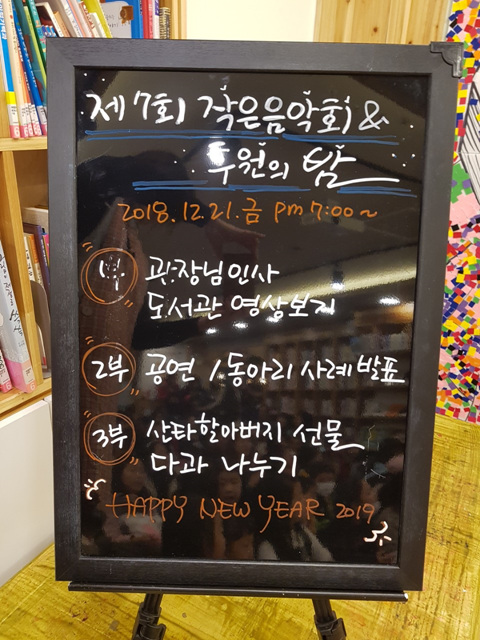 제 7회 작은음악회 &
후원의 밤
2018.12.21.금 pm 7:00~
1부 관장님인사
도서관 영상보기
2부 공연 / 동아리 사례발표
3부 산타할아버지 선물
다과 나누기
HAPPY NEW YEAR 2019